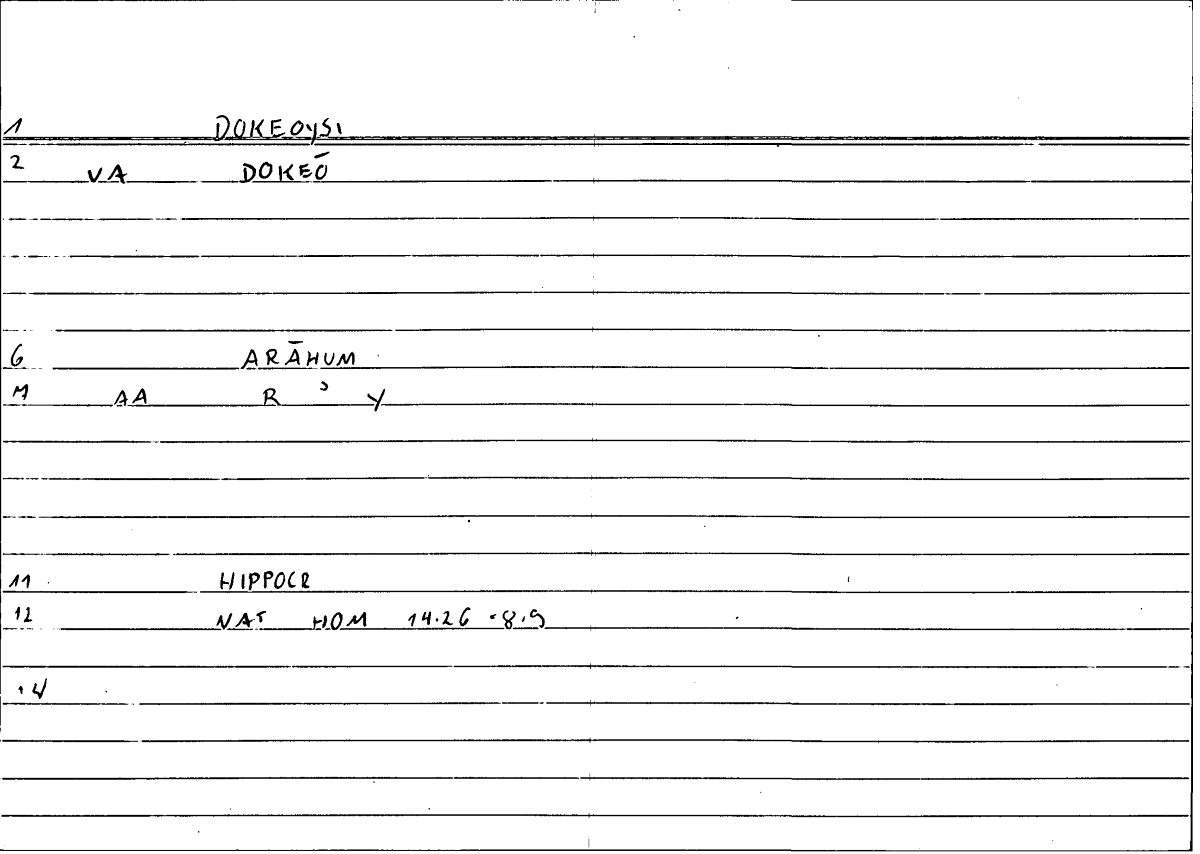 1 DOKEOYSI
2 VA DOKEŌ
6 ARĀHUM
M AA R ʾ Y
11 HIPPOCR
12 NAT HOM 14.26 -8.9
14